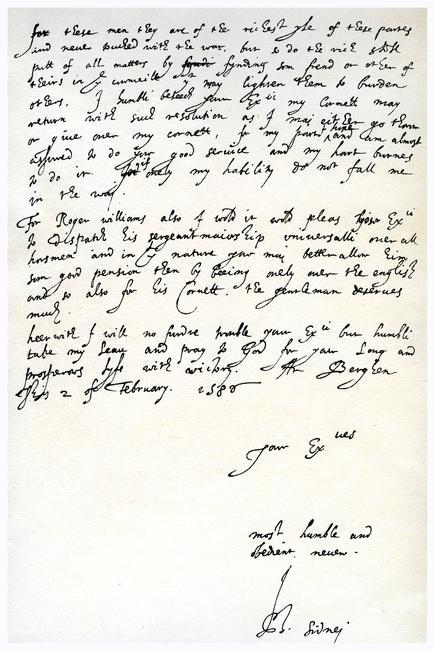 for these men they are of the richest of these partes
and neue tuched with the war. but so do the rich still
putt of all maters by fynding som frend or other of
theirs in ye may lighten them to burden
others, I humbli beseech your Ex my Cornett may
return with such resolution as I mai either go thorow
or give over my cornett, for my part time and am almost
assured to do your good service and my hart burnes
to do it if onely my hability do not fall me
in the way
For Roger williams also I wold it wold pleas your Ex
to dispatch his sergeantmaiorship universalli over all
horsmen and in ye nature your may better allow him
som good pension then by beeing onely over the english
and so also for his Cornett. the gentleman deserves
much.
heerwith I will no furdre trouble your Ex but humbli
take my leau and pray to God for your Long and
prosperous lyfe with victory. At Berghen
this 2 of February. 1586
your Ex
most humble and
obedient neueu.
Ph. Sidnei